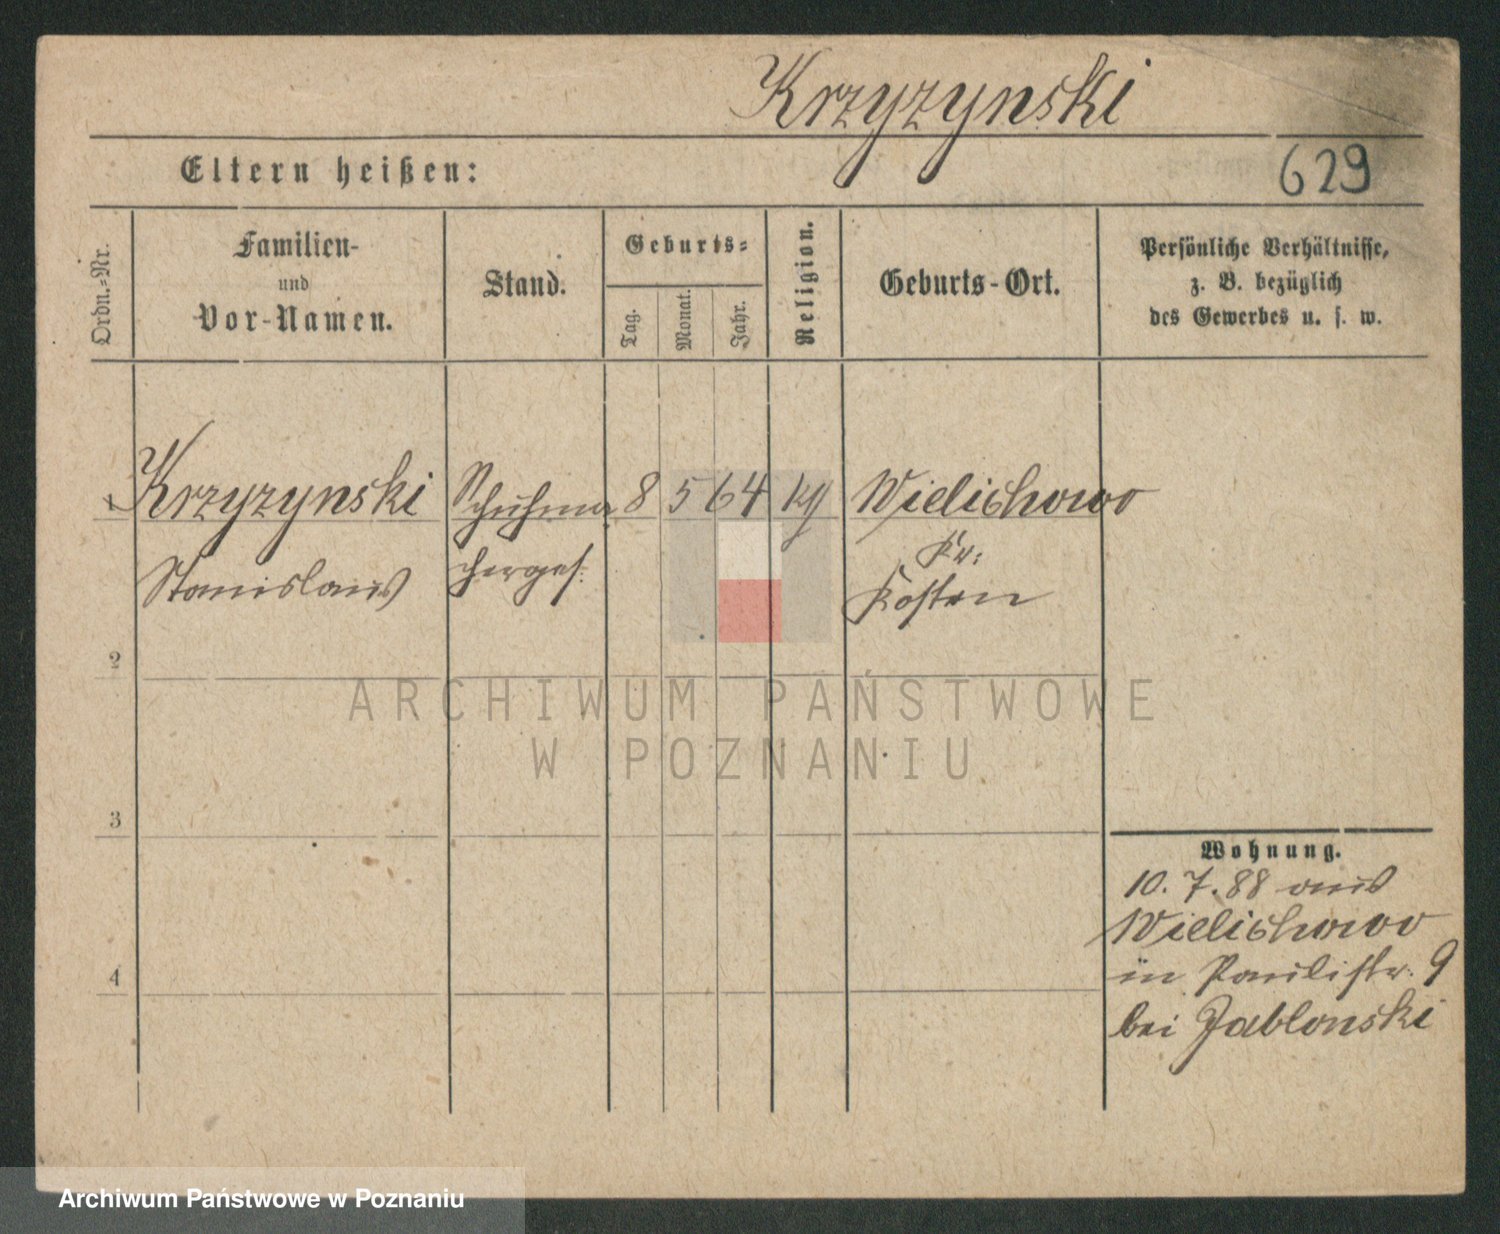 Krzyzynski
Eltern heißen:
629
Ordn.-Nr.
Familien-
und
Vor-Namen.
Stand.
Geburts-
Tag.
Monat.
Jahr.
Religion.
Geburts-Ort.
Persönliche Verhältnisse,
z. B. bezüglich
des Gewerbes u. s. w.
1 Krzyzynski Schuhma 8 5 64 kg Wielichowo
Stanislaus cherges. Kr:
Kosten
2
ARCHIWUM PAŃSTWOWE
W POZNANIU
3
4
Wohnung.
10. 7. 88 aus
Wielichowo
in Paulistr. 9
bei Jablonski
Archiwum Państwowe w Poznaniu